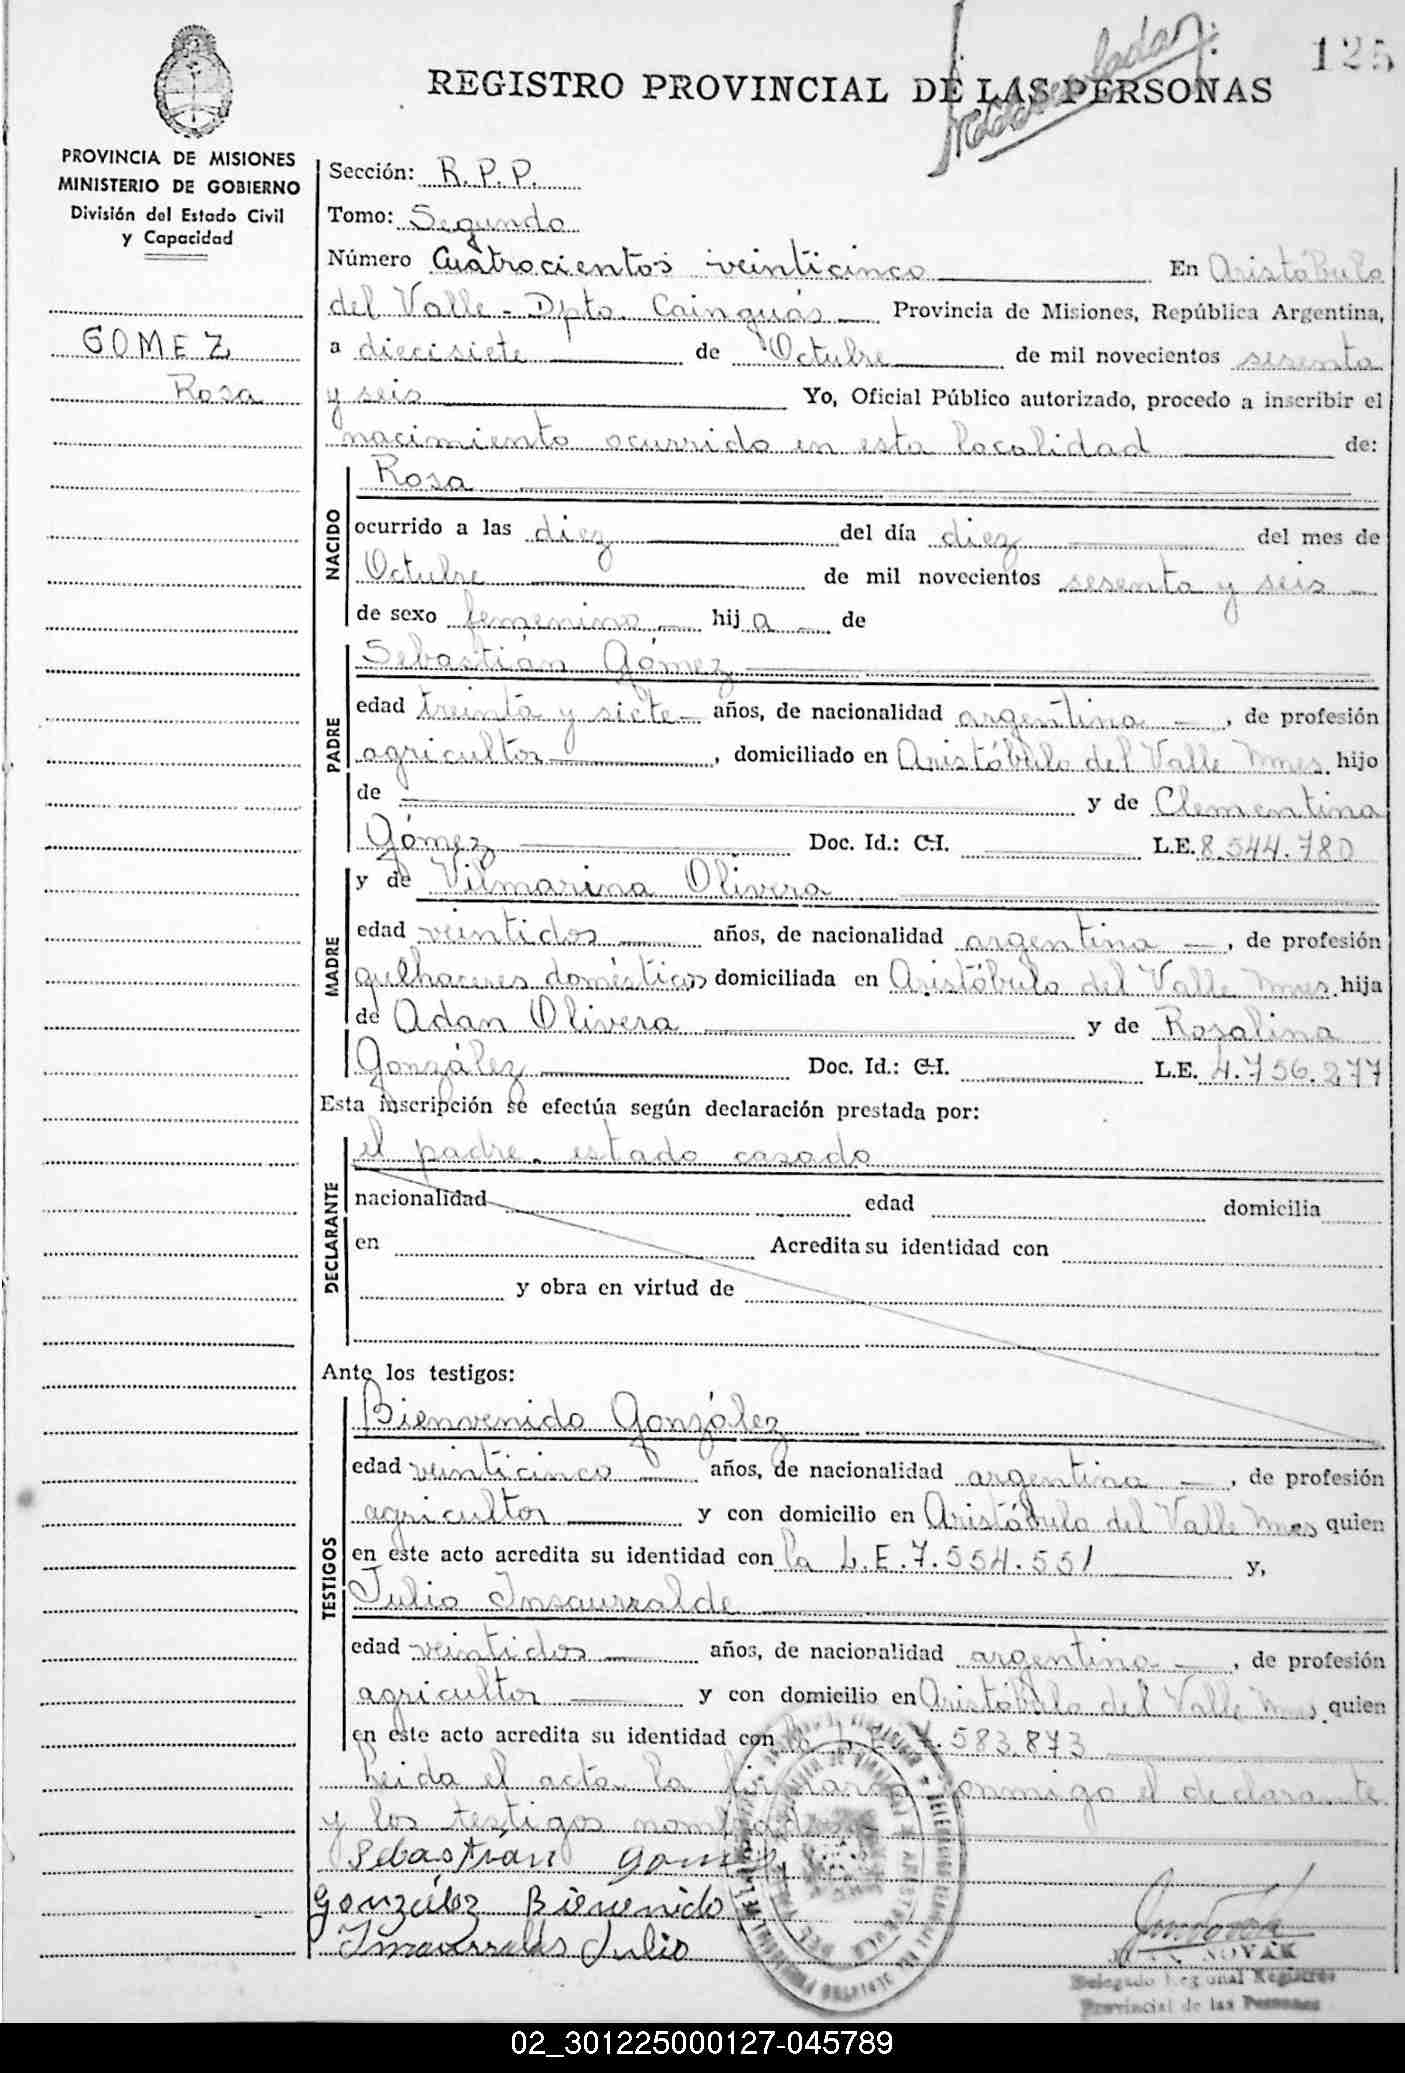 125
REGISTRO PROVINCIAL DE LAS PERSONAS
PROVINCIA DE MISIONES
MINISTERIO DE GOBIERNO
División del Estado Civil
y Capacidad
GOMEZ
Rosa
Sección: R.P.P.
Tomo: Segundo
Número Cuatrocientos veinticinco En Aristóbulo
del Valle - Dpto. Cainguás Provincia de Misiones, República Argentina,
a diecisiete de Octubre de mil novecientos sesenta
y seis Yo, Oficial Público autorizado, procedo a inscribir el
nacimiento ocurrido en esta localidad de:
NACIDO
Rosa
ocurrido a las diez del día diez del mes de
Octubre de mil novecientos sesenta y seis
de sexo femenino hij a de
PADRE
Sebastián Gómez
edad treinta y siete años, de nacionalidad argentina, de profesión
agricultor, domiciliado en Aristóbulo del Valle Mnes. hijo
de y de Clementina
Gómez Doc. Id.: C.I. L.E. 8.544.780
MADRE
y de Vilmarina Olivera
edad veintidos años, de nacionalidad argentina, de profesión
quelhaceres domésticos domiciliada en Aristóbulo del Valle Mnes. hija
de Adan Olivera y de Rosalina
González Doc. Id.: C.I. L.E. 4.756.277
Esta inscripción se efectúa según declaración prestada por:
DECLARANTE
el padre. estado casado
nacionalidad edad domicilia
en Acredita su identidad con
y obra en virtud de
Ante los testigos:
TESTIGOS
Bienvenido González
edad veinticinco años, de nacionalidad argentina, de profesión
agricultor y con domicilio en Aristóbulo del Valle Mnes quien
en este acto acredita su identidad con la L.E. 7.554.551 y,
Julio Insaurralde
edad veintidos años, de nacionalidad argentina, de profesión
agricultor y con domicilio en Aristóbulo del Valle Mnes. quien
en este acto acredita su identidad con la L.E. 7.583.873
Leida el acta la firmaron conmigo el declarante
y los testigos nombrados
Sebastián Gomez
González Bienvenido
Insaurralde Julio
JUAN NOVAK
Delegado Regional Registro
Provincial de las Personas
02_301225000127-045789